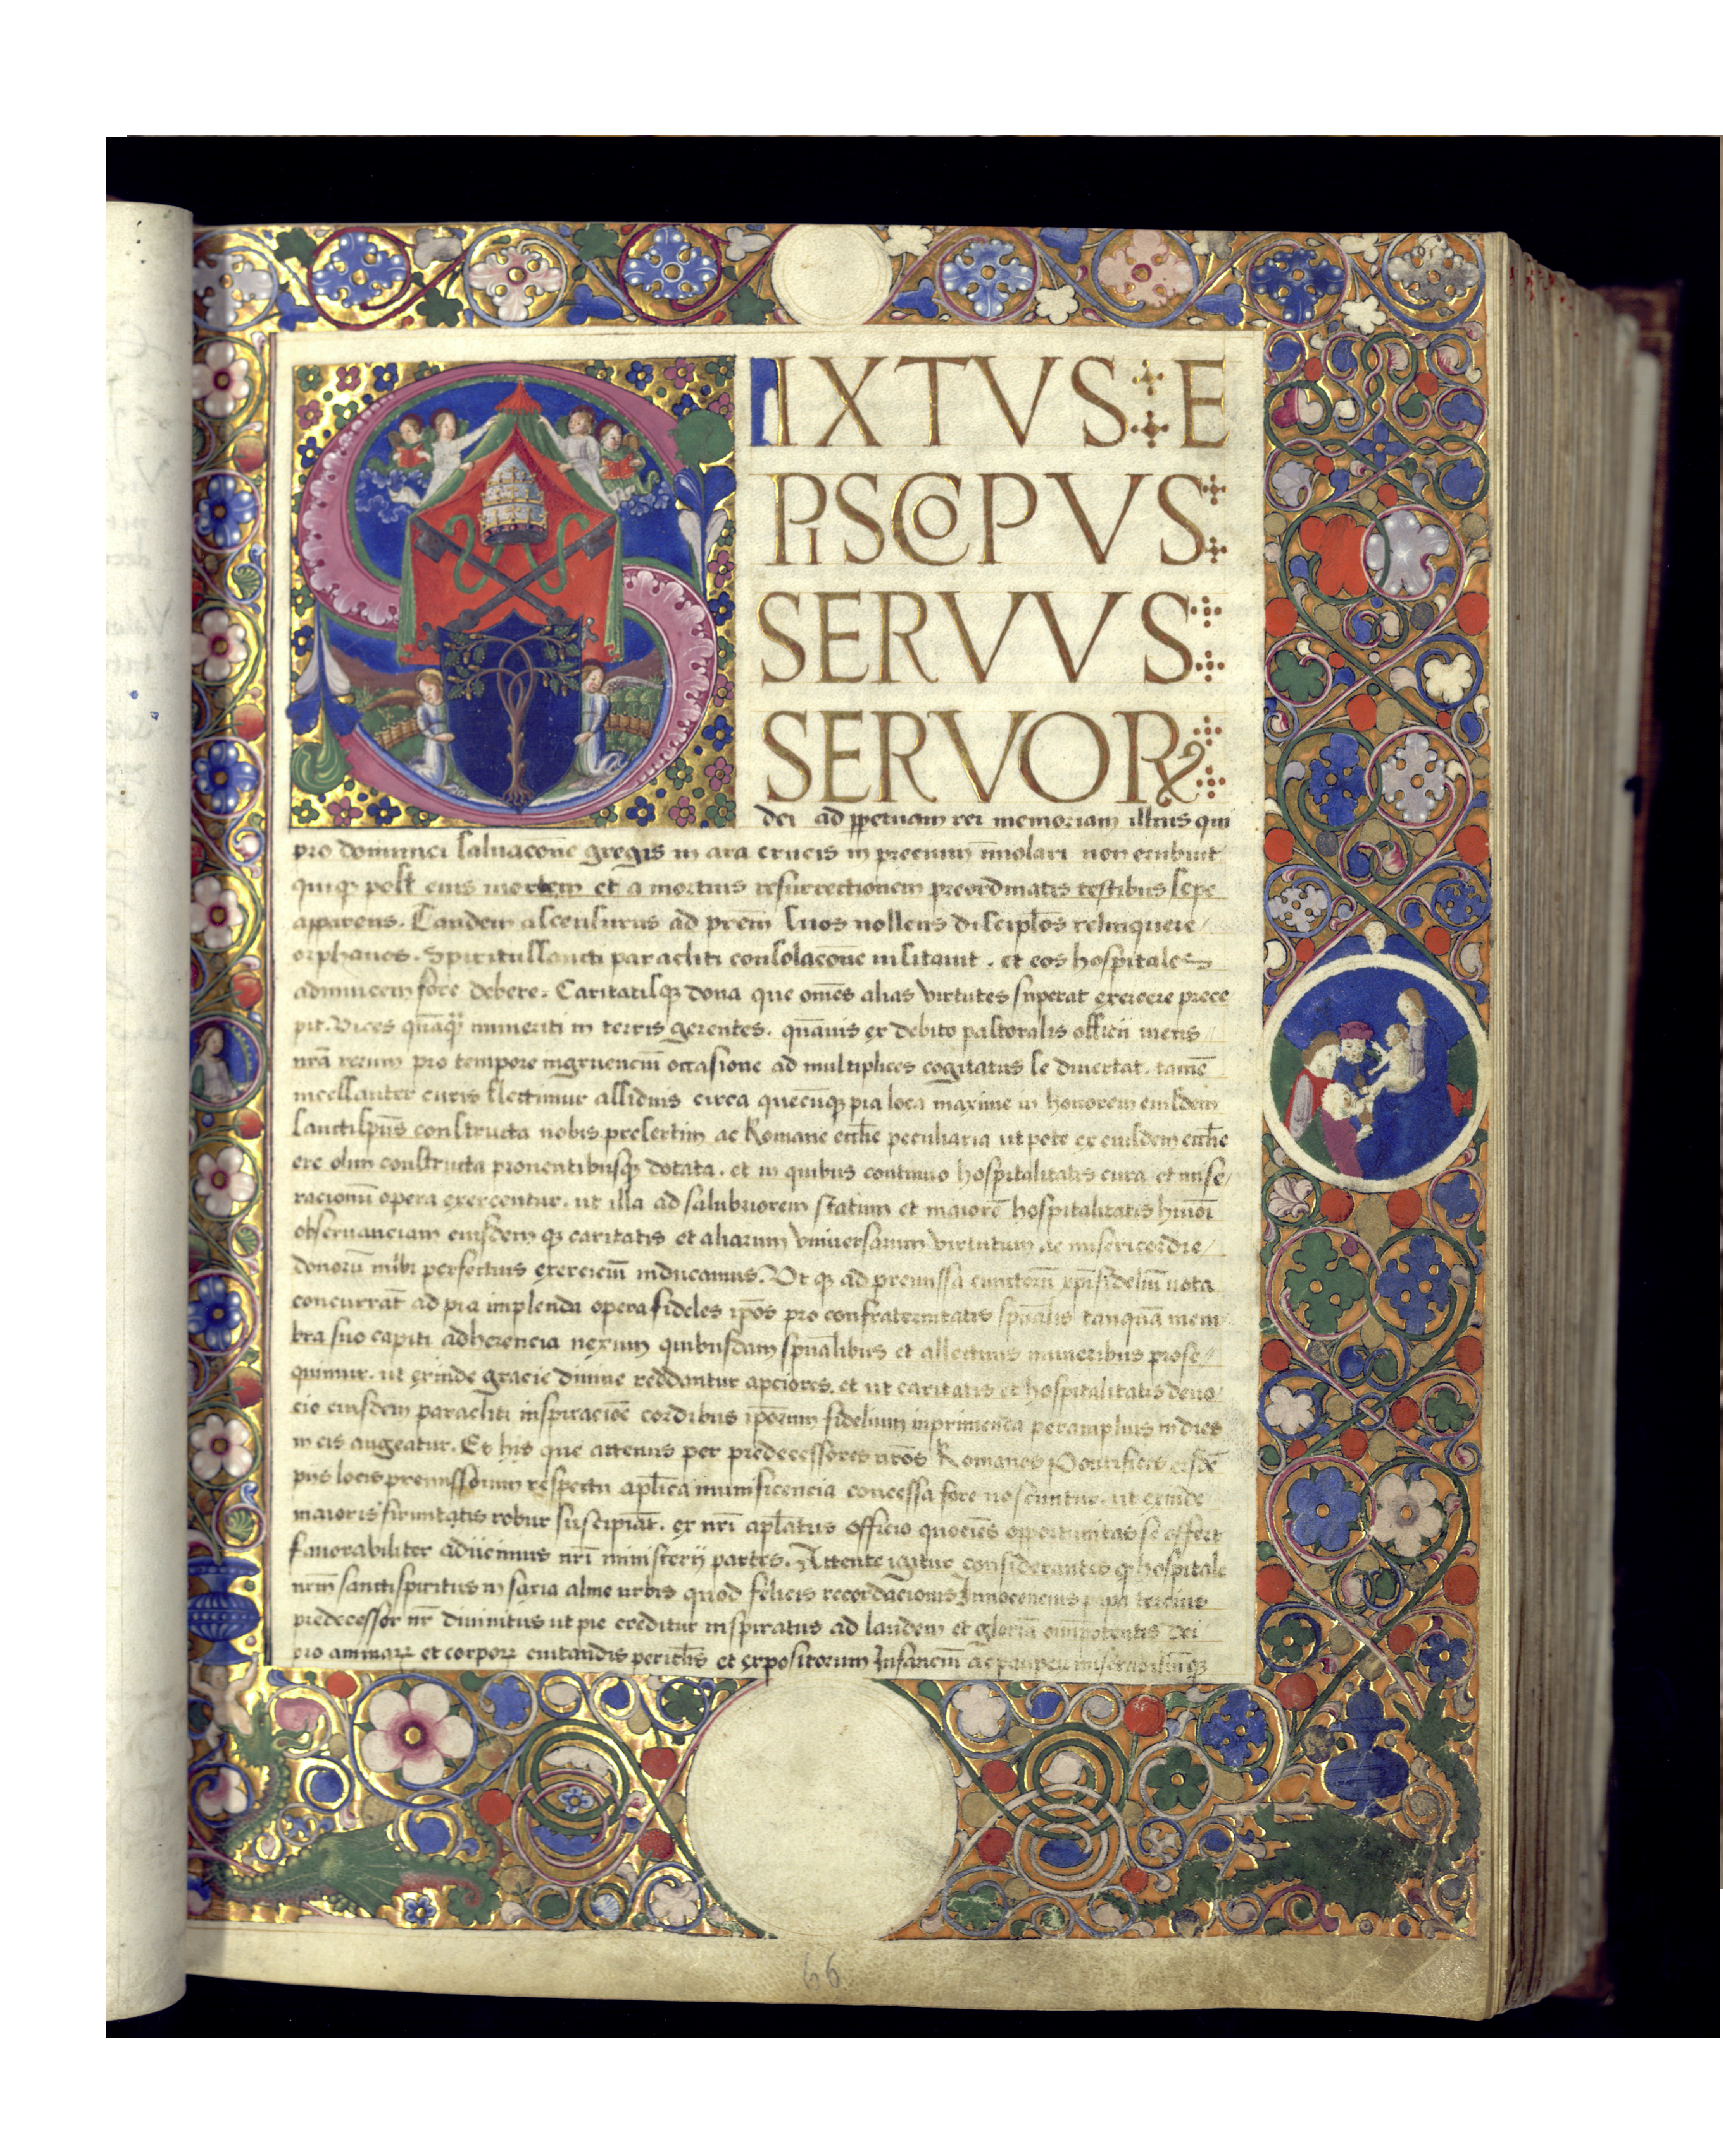 SIXTVS E
PISCOPVS
SERVVS
SERVOR
dei ad ppetuam rei memoriam illius qui
pro dominici saluacone gregis in ara crucis in precium imolari non erubuit
quiq post eius mortem et a mortuis resurrectionem preordinatis testibus sepe
apparens. Tandem ascensurus ad prem suos nollens discipulos relinquere
orphanos. Spiritussancti paracliti consolacone uisitauit. et eos hospitales
adinuicem fore debere. Caritatisq dona que omes alias virtutes superat exercere prece
pit. Vices in terris gerentes. quauis ex debito pastoralis officii
nra rerum pro tempore ingruencium occasione ad multiplices cogitatus se diuertat. tame
incessanter curis flectimur assiduis circa quecuq pia loca maxime in honorem eiusdem
sanctispus constructa nobis presertim ac Romane ecclie peculiaria ut pote ex eiusdem ecclie
ere olim constructa prouentibusq dotata. et in quibus continuo hospitalitatis cura et mise
racionu opera exercentur. ut illa ad salubriorem statum et maiore hospitalitatis huiusmoi
obseruanciam eiusdem q caritatis et aliarum vniuersarum virtutum ac misericordie
donoru inibi perfectius exerciciu inducamus. Ut q ad premissa cunctoru xpifideliu uota
concurrat ad pia implenda opera fideles ipos pro confraternitatis spualis tanqua mem
bra suo capiti adherencia nexum quibusdam spualibus et allectiuis muneribus prose
quimur. ut exinde gracie diuine reddantur apciores. et ut caritatis et hospitalitatis deuo
cio eiusdem paracliti inspiracioe cordibus iporum fidelium inprimenda peramplius in dies
in eis augeatur. Et his que actenus per predecessores nros Romanos Pontifices eisde
piis locis premissorum respectu aplica munificencia concessa fore noscuntur. ut exinde
maioris firmitatis robur suscipiat. ex nri aplatus officio quociens opportunitas se offert
fauorabiliter adiicimus nri ministerij partes. Attente igitur considerantes q hospitale
nrm sanctispiritus in saxia alme urbis quod felicis recordacionis Innocencius papa tercius
predecessor nr diuinitus ut pie creditur inspiratus ad laudem et gloria omipotentis Dei
pro animar et corpor euitandis periclis et expositorum Infanciu ac pauperu miserabiliuq
66